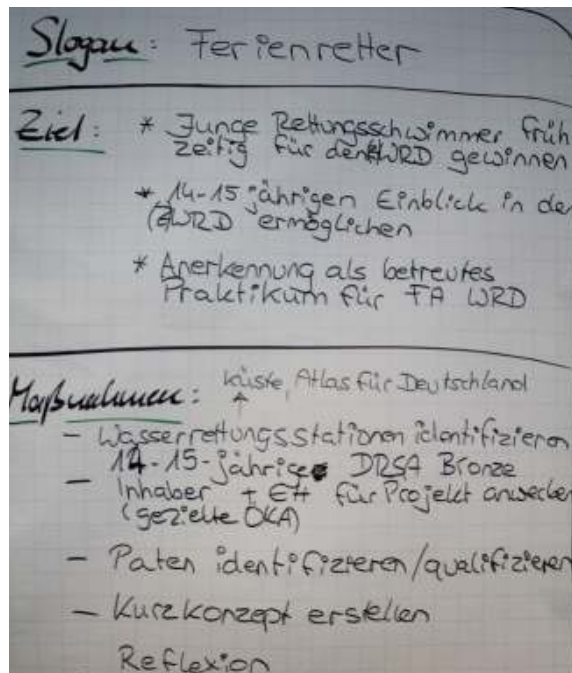 Slogan: Ferienretter
Ziel: * Junge Rettungsschwimmer früh
zeitig für den WRD gewinnen
* 14-15 jährigen Einblick in de
WRD ermöglichen
* Anerkennung als betreutes
Praktikum für FA WRD
Maßnahmen: Küste, Atlas für Deutschland
- Wasserrettungsstationen identifizieren
- 14-15-jährige DRSA Bronze
Inhaber + EH für Projekt
(gezielte ÖKA)
- Paten identifizieren/qualifizieren
- Kurzkonzept erstellen
Reflexion